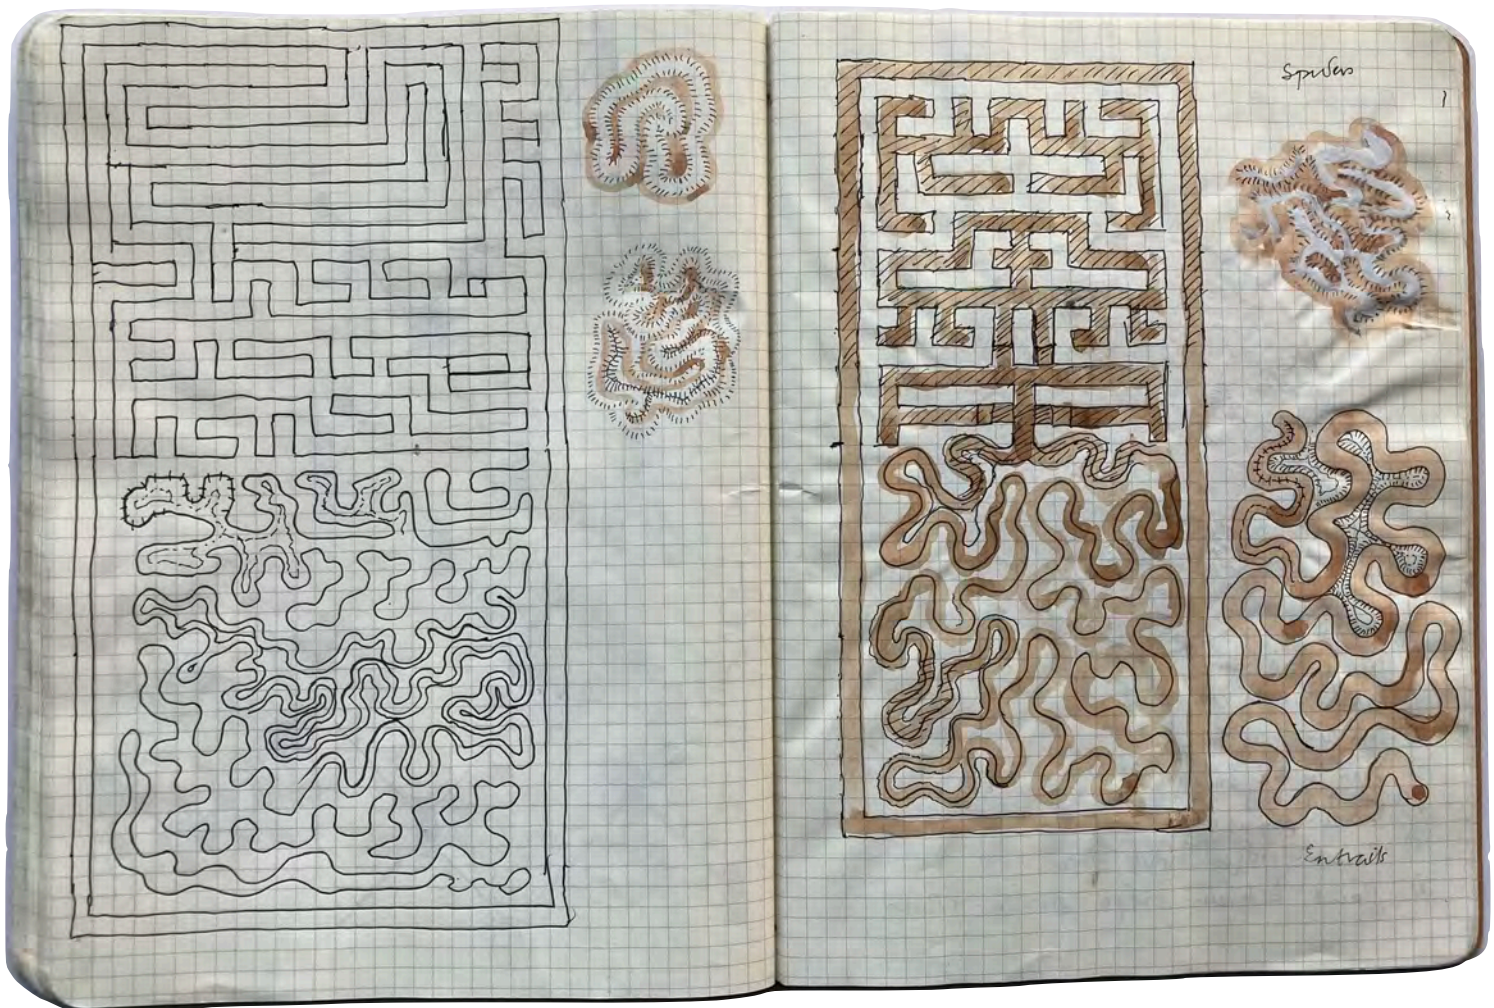 Spiders
Entrails